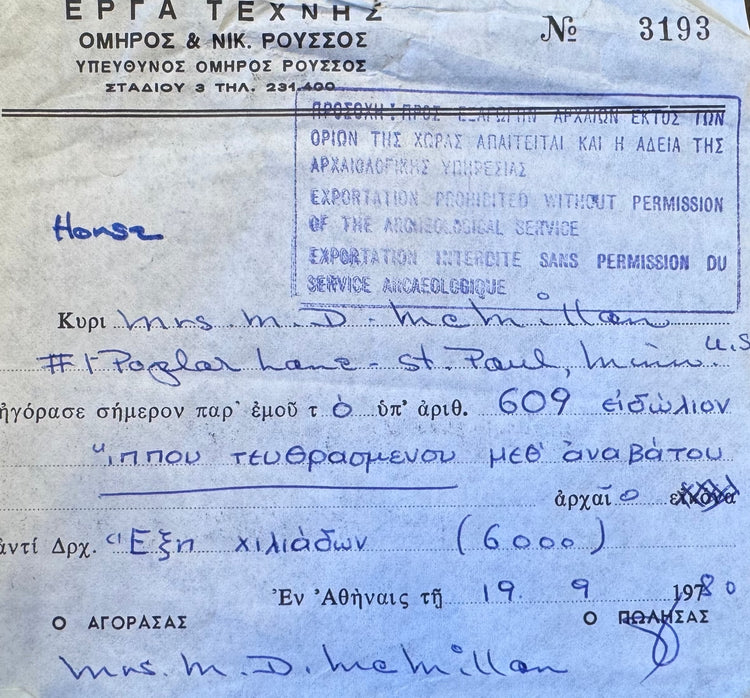 ΕΡΓΑ ΤΕΧΝΗΣ
ΟΜΗΡΟΣ & ΝΙΚ. ΡΟΥΣΣΟΣ
ΥΠΕΥΘΥΝΟΣ ΟΜΗΡΟΣ ΡΟΥΣΣΟΣ
ΣΤΑΔΙΟΥ 3 ΤΗΛ. 231.400
№ 3193
ΠΡΟΣΟΧΗ! ΠΡΟΣ ΕΞΑΓΩΓΗΝ ΑΡΧΑΙΩΝ ΕΚΤΟΣ ΤΩΝ
ΟΡΙΩΝ ΤΗΣ ΧΩΡΑΣ ΑΠΑΙΤΕΙΤΑΙ ΚΑΙ Η ΑΔΕΙΑ ΤΗΣ
ΑΡΧΑΙΟΛΟΓΙΚΗΣ ΥΠΗΡΕΣΙΑΣ
EXPORTATION PROHIBITED WITHOUT PERMISSION
OF THE ARCHEOLOGICAL SERVICE
EXPORTATION INTERDITE SANS PERMISSION DU
SERVICE ARCAEOLOGIQUE
Horse
Κυρι Mrs. M. D. McMillan
#1 Poplar Lane - St. Paul, Minn. U.S
ηγόρασε σήμερον παρ' ἐμοῦ τ ὸ ὑπ' ἀριθ. 609 εἰδώλιον
ἵππου τευθρασμενου μεθ' ἀναβάτου
ἀρχαῖ ο
ἀντί Δρχ. Ἕξη χιλιάδων (6000)
Ἐν Ἀθήναις τῇ 19. 9 197 80
Ο ΑΓΟΡΑΣΑΣ Ο ΠΩΛΗΣΑΣ
Mrs. M. D. McMillan